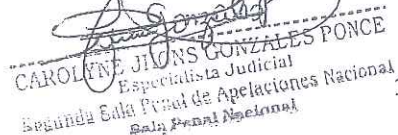 CAROLYNE JIMONS GONZALES PONCE
Especialista Judicial
Segunda Sala Penal de Apelaciones Nacional
Sala Penal Nacional